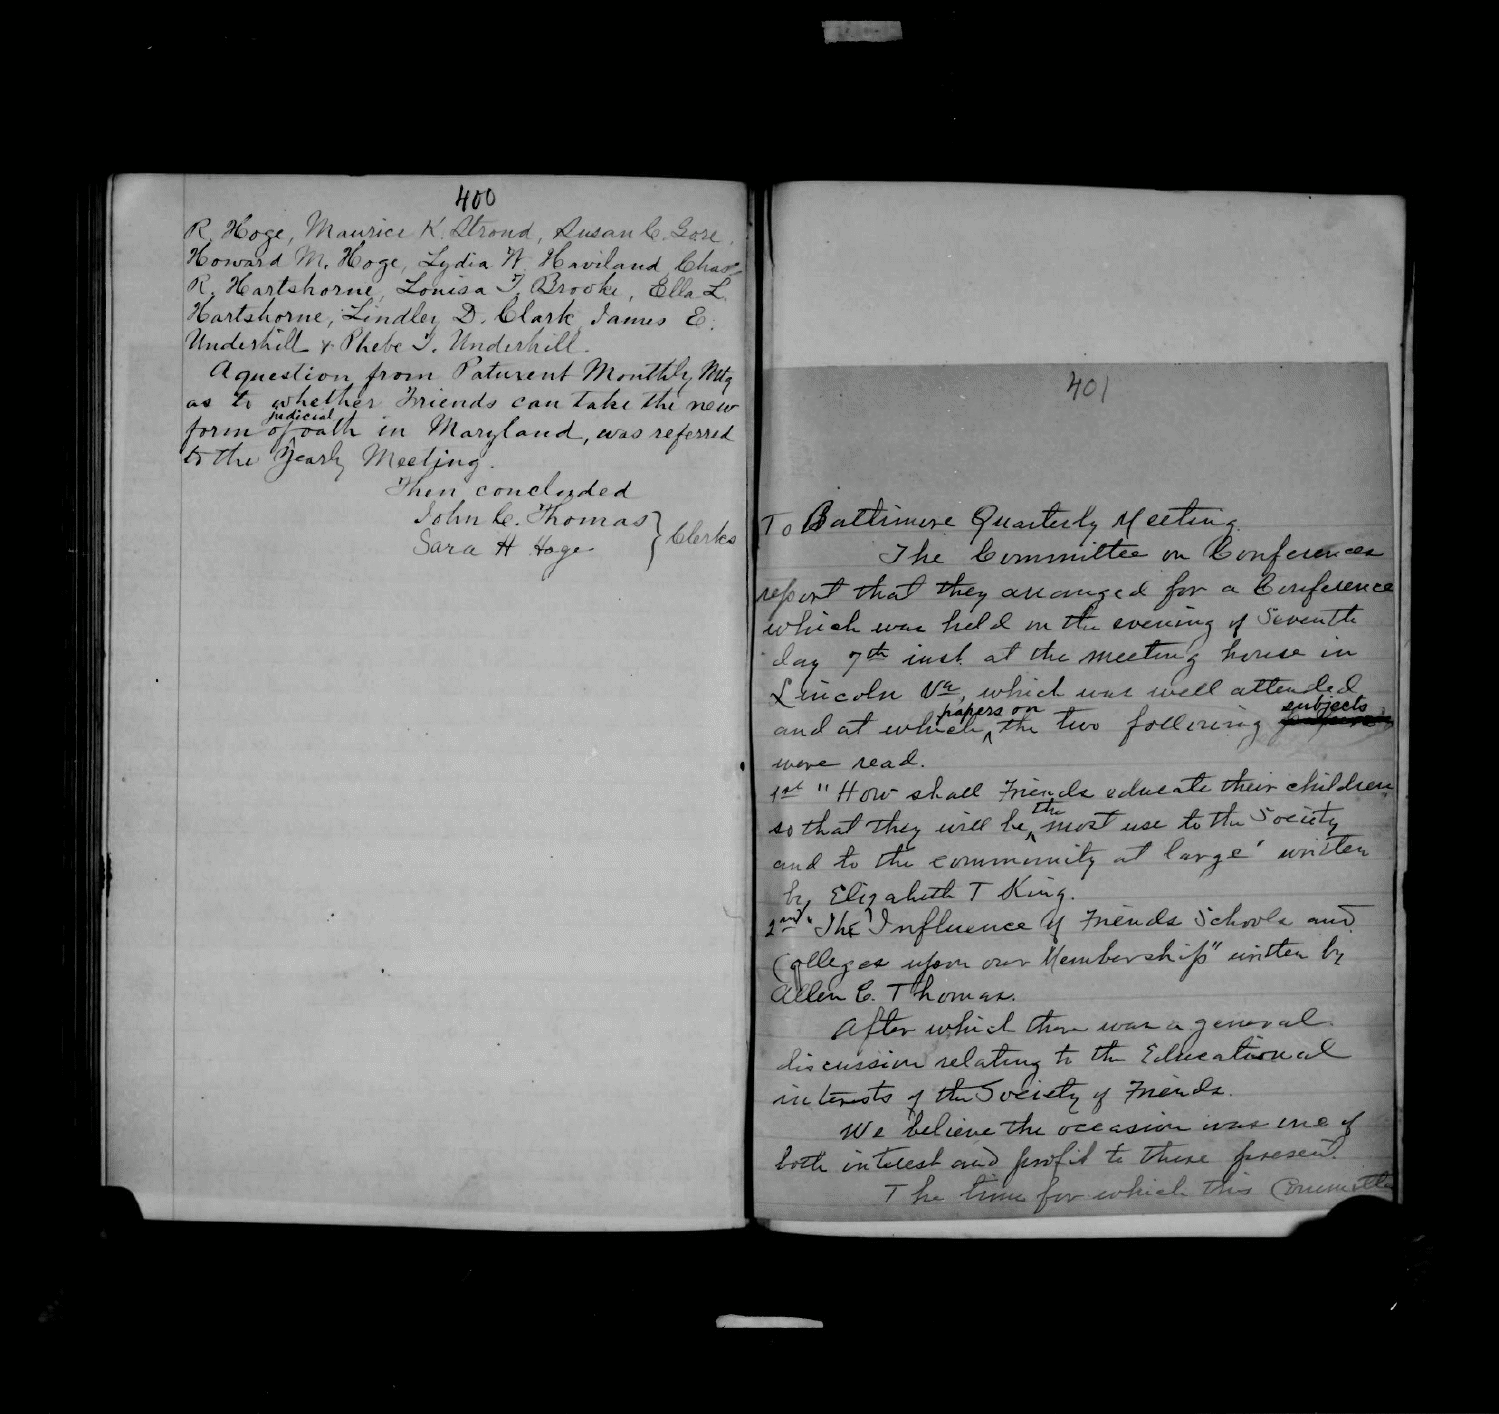 400
R. Hoge, Maurice K. Stroud, Susan C. Gore,
Howard M. Hoge, Lydia W. Haviland, Chas.
R. Hartshorne, Louisa T. Brooke, Ella L.
Hartshorne, Lindley D. Clark, James E.
Underhill & Phebe T. Underhill.
A question from Patuxent Monthly Mtg
as to whether Friends can take the new
form of judicial oath in Maryland, was referred
to the Yearly Meeting.
Then concluded
John C. Thomas
Sara H Hoge } Clerks
401
To Baltimore Quarterly Meeting.
The Committee on Conferences
report that they arranged for a Conference
which was held on the evening of Seventh
day 7th inst. at the meeting house in
Lincoln Va, which was well attended
and at which papers on the two following subjects
were read.
1st "How shall Friends educate their children
so that they will be the most use to the Society
and to the community at large' written
by Elizabeth T King.
2nd "The Influence of Friends Schools and
Colleges upon our Membership" written by
Allen C. Thomas.
After which there was a general
discussion relating to the Educational
interests of the Society of Friends.
We believe the occasion was one of
both interest and profit to those present.
The time for which this Committee